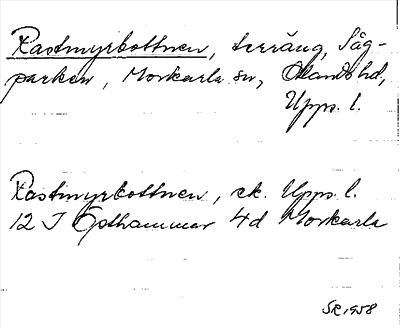 Rastmyrbottnen, terräng, Såg-
parken, Morkarla sn, Olands hd,
Upps. l.
Rastmyrbottnen, ek. Upps. l.
12 I Östhammar 4d Morkarla
SR 1958